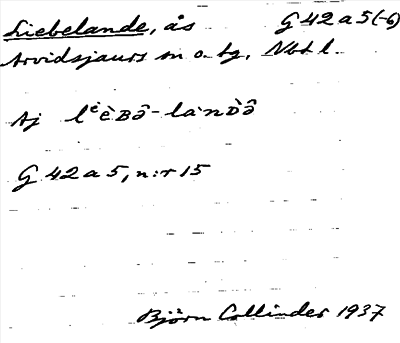 Liebelande, ås G 42 a 5 (-6)
Arvidsjaurs sn o. tg, Nbtl.
Aj lᵉèBə̂-la`nD̀ə̂
G 42 a 5, n:r 15
Björn Collinder 1937